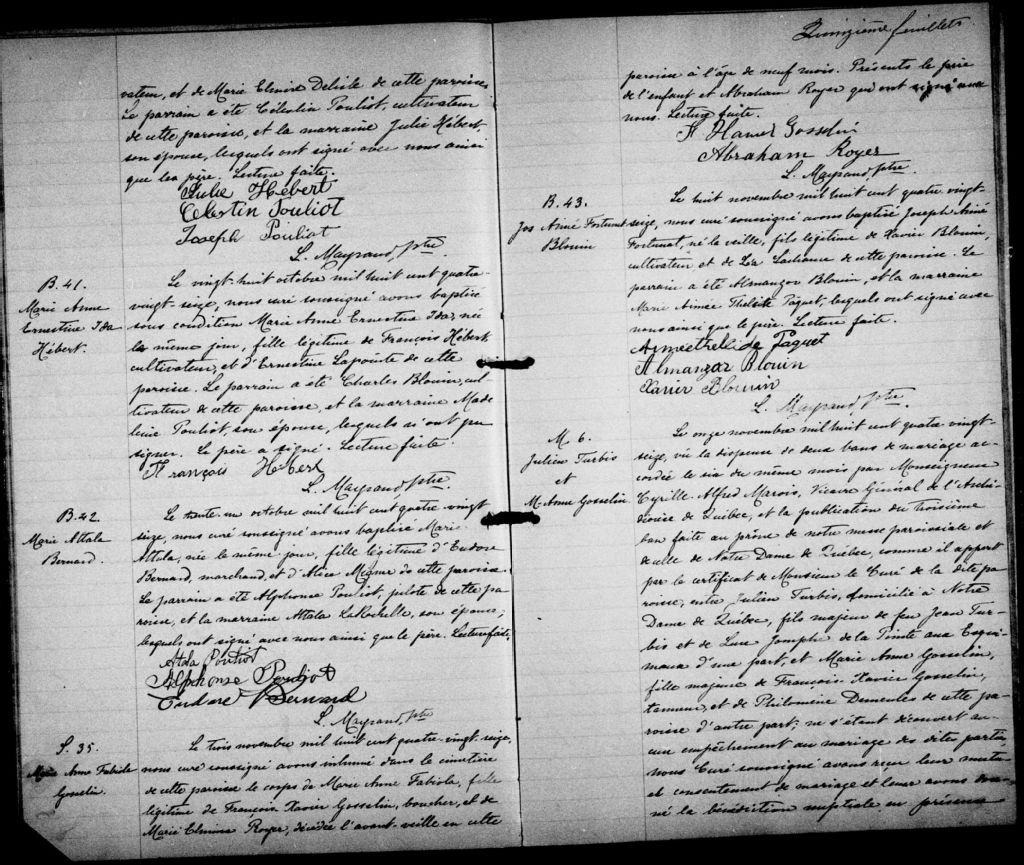 vateur, et de Marie Elmire Delisle de cette paroisse.
Le parrain a été Célestin Pouliot, cultivateur
de cette paroisse, et la marraine Julie Hébert,
son épouse, lesquels ont signé avec nous ainsi
que le père. Lecture faite.
Julie Hébert
Célestin Pouliot
Joseph Pouliot
L. Mayrand, ptre
B. 41.
Marie Anne
Ernestine Ida
Hébert.
Le vingt-huit octobre mil huit cent quatre-
vingt-seize, nous curé soussigné avons baptisé
sous condition Marie Anne Ernestine Ida, née
le même jour, fille légitime de François Hébert,
cultivateur, et d'Ernestine Lapointe de cette
paroisse. Le parrain a été Charles Blouin, cul-
tivateur de cette paroisse, et la marraine Made
leine Pouliot, son épouse, lesquels n'ont pu
signer. Le père a signé. Lecture faite.
François Hebert
L. Mayrand, ptre
B. 42
Marie Attala
Bernard.
Le trente un octobre mil huit cent quatre-vingt
seize, nous curé soussigné avons baptisé Marie
Attala, née le même jour, fille légitime d'Eudore
Bernard, marchand, et d'Alice de cette paroisse.
Le parrain a été Alphonse Pouliot, pilote de cette pa
roisse, et la marraine Attala LaRochelle, son épouse;
lesquels ont signé avec nous ainsi que le père. Lecture faite.
Atala Pouliot
Alphonse Pouliot
Eudore Bernard
L. Mayrand, ptre
S. 35.
Marie Anne Fabiola
Gosselin.
Le trois novembre mil huit cent quatre-vingt-seize,
nous curé soussigné avons inhumé dans le cimetière
de cette paroisse le corps de Marie Anne Fabiola, fille
légitime de François Xavier Gosselin, boucher, et de
Marie Elmina Royer, décédée l'avant-veille en cette
Quinzième feuillets
paroisse à l'âge de neuf mois. Présents le père
de l'enfant et Abraham Royer qui ont signé avec
nous. Lecture faite.
Gosselin
Abraham Royer
L. Mayrand ptre
B. 43.
Jos Aimé Fortunat
Blouin
Le huit novembre mil huit cent quatre vingt-
seize, nous curé soussigné avons baptisé Joseph Aimé
Fortunat, né la veille, fils légitime de Xavier Blouin,
cultivateur et de Léa Lachance de cette paroisse. Le
parrain a été Almanzor Blouin, et la marraine
Marie Aimée Paquet, lesquels ont signé avec
nous ainsi que le père. Lecture faite.
Paquet
Almanzar Blouin
Xavier Blouin
L. Mayrand, ptre
M. 6.
Julien Turbis
et
M. Anne Gosselin
Le onze novembre mil huit cent quatre vingt-
seize, vu la dispense de deux bans de mariage ac-
cordée le six du même mois par Monseigneur
Cyrille Alfred Marois, Vicaire Général de l'Archi-
diocèse de Québec, et la publication du troisième
ban faite au prône de notre messe paroissiale et
de celle de Notre Dame de Québec, comme il appert
par le certificat de Monsieur le Curé de la dite pa
roisse, entre Julien Turbis, domicilié à Notre
Dame de Québec, fils majeur de feu Jean Tur-
bis et de Luce Jomphe de la Pointe aux Esqui-
maux d'une part, et Marie Anne Gosselin,
fille majeure de François Xavier Gosselin,
et de Philomène Demeules de cette pa-
roisse d'autre part; ne s'étant découvert au-
cun empêchement au mariage des dites parties,
nous Curé soussigné avons reçu leur mutu-
el consentement de mariage et leur avons don-
né la bénédiction nuptiale en présence